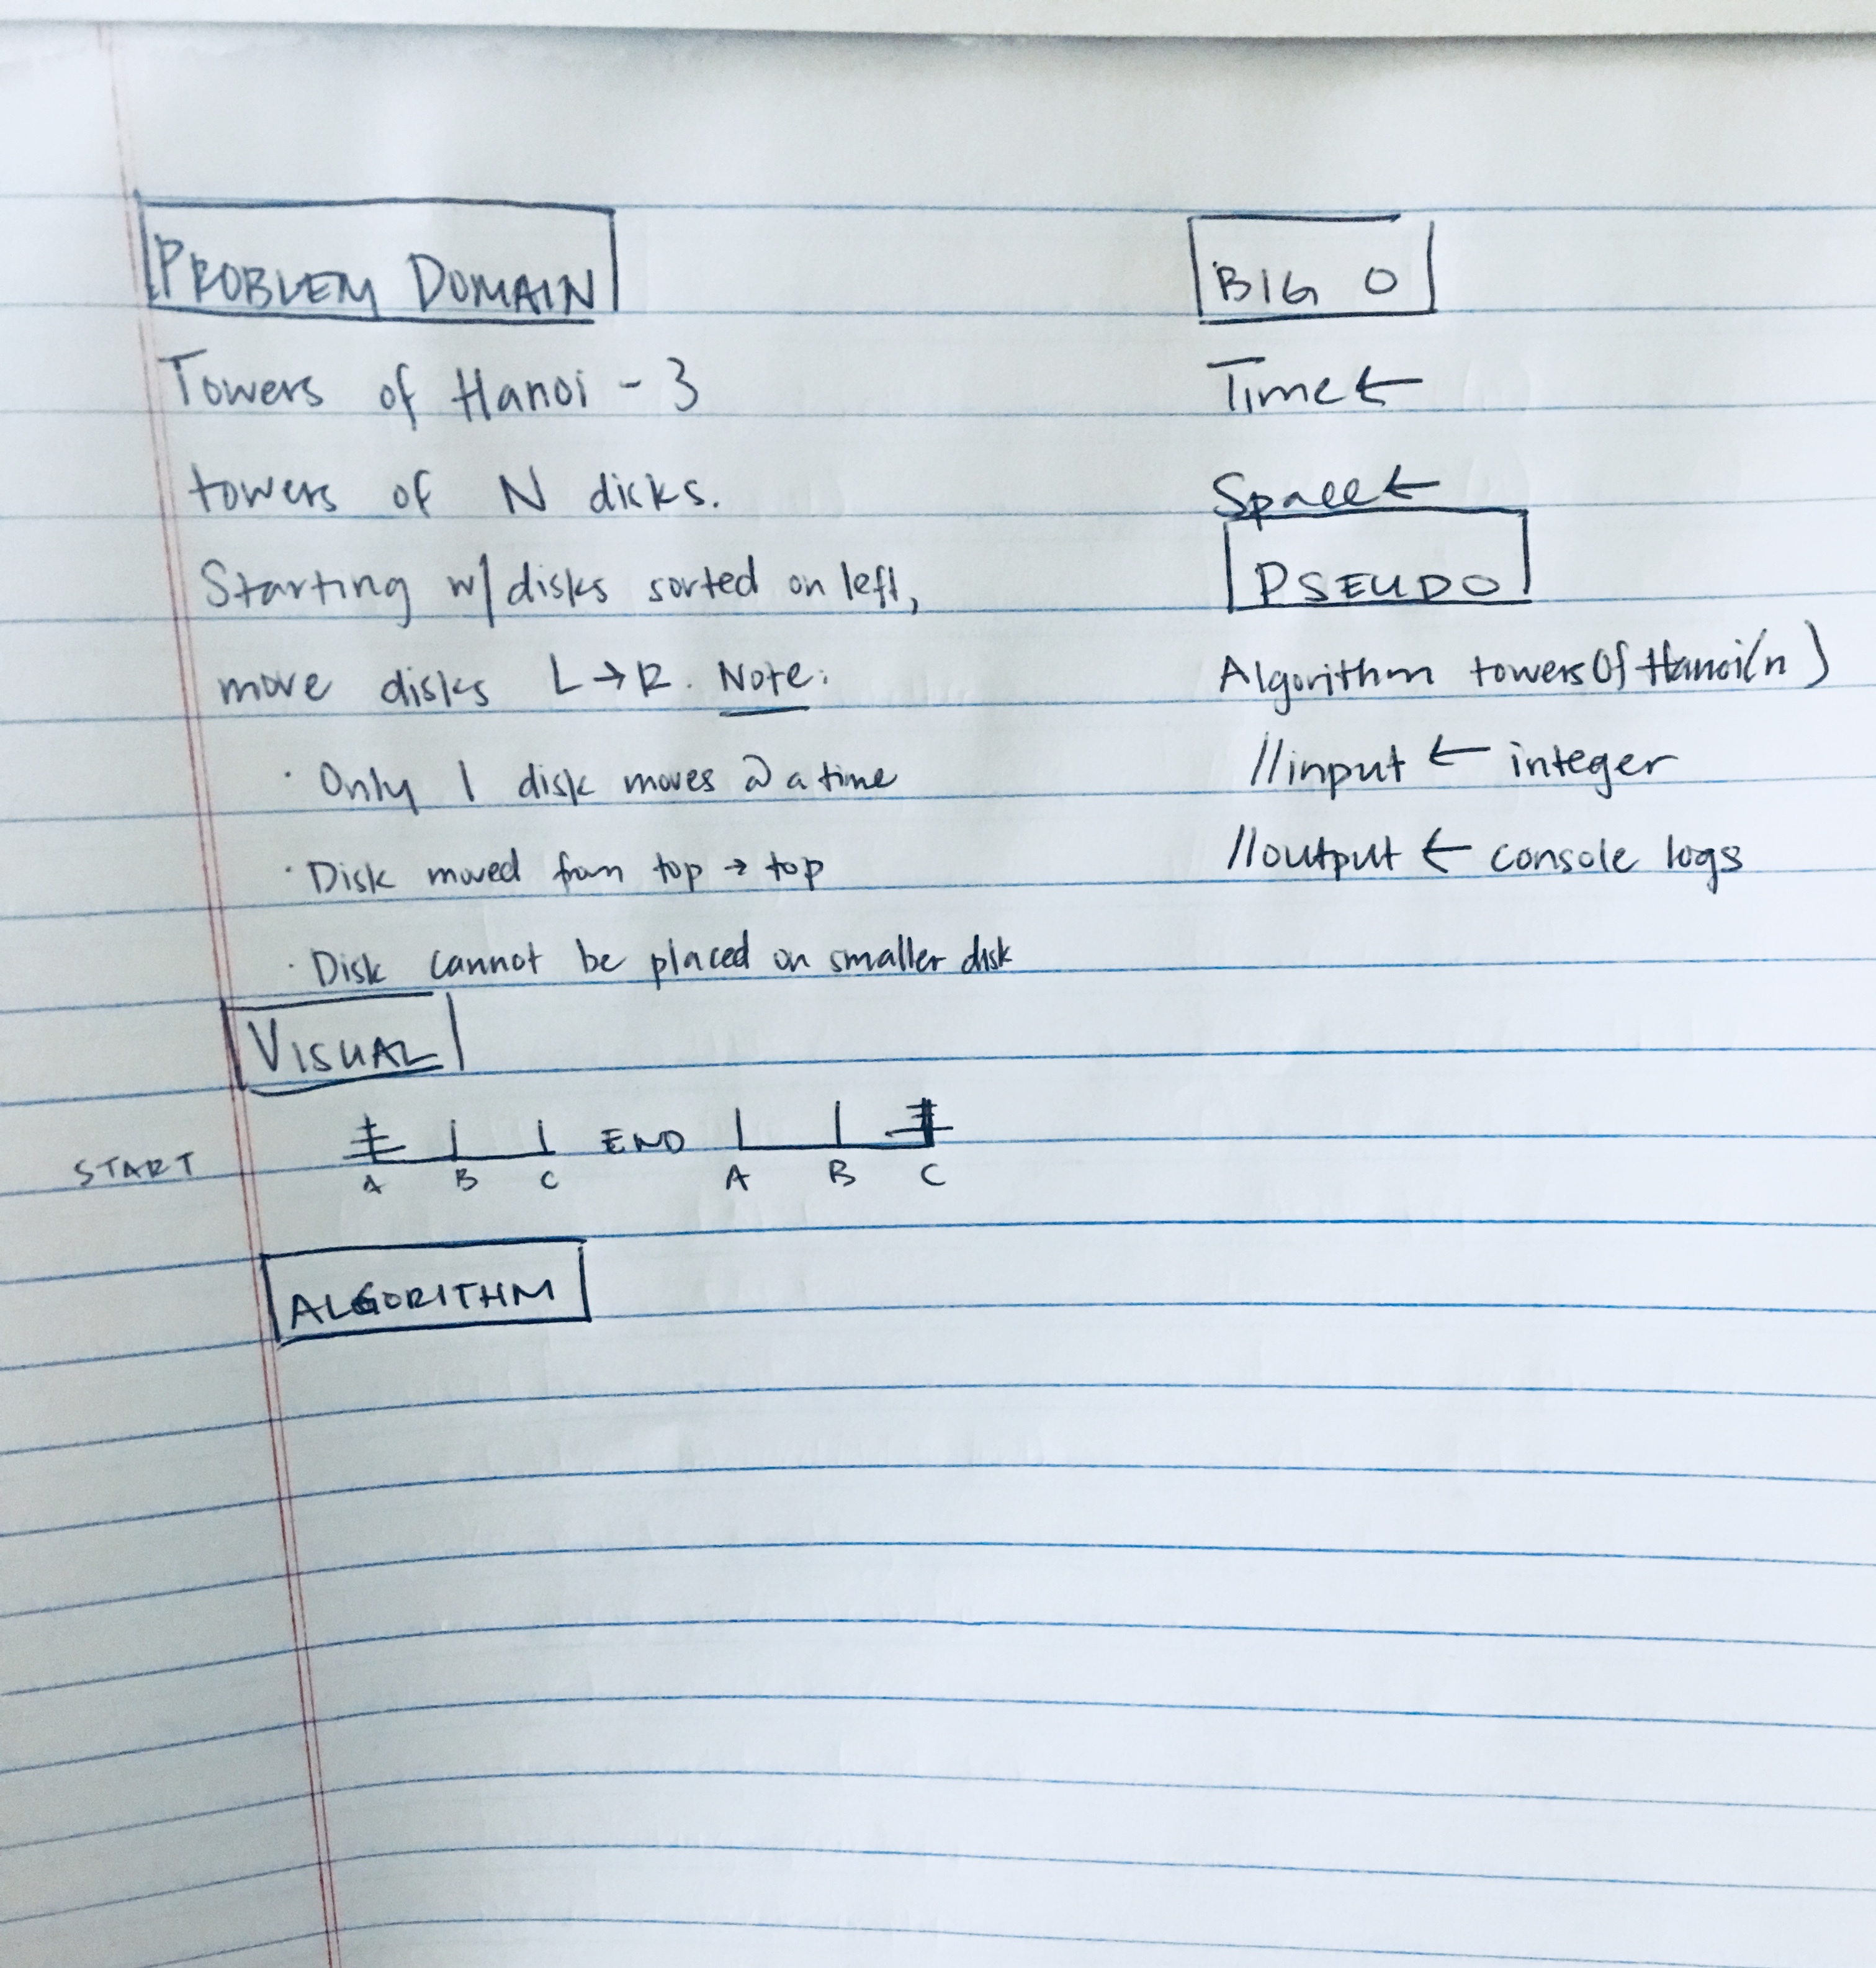 PROBLEM DOMAIN
Towers of Hanoi - 3
towers of N disks.
Starting w/ disks sorted on left,
move disks L → R. Note:
· Only 1 disk moves @ a time
· Disk moved from top → top
· Disk cannot be placed on smaller disk
VISUAL
START A B C END A B C
ALGORITHM
BIG O
Time ←
Space ←
PSEUDO
Algorithm towersOfHanoi(n)
//input ← integer
//output ← console logs